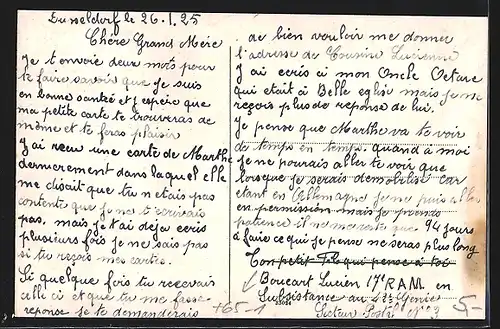 Dusseldorf le 26.1.25
Chère Grand Mère
Je t envoie deux mots pour
te faire savoir que je suis
en bonne santé et j espère que
ma petite carte te trouveras de
même et te feras plaisir
J ai reçu une carte de Marthe
dernierement dans laquel elle
me disait que tu n etais pas
contente que je ne t ecrivais
pas. mais je t ai deja ecris
plusieurs fois je ne sais pas
si tu reçois mes cartes.
Si quelque fois tu recevais
celle ci et que tu me fasse
reponse je te demanderais
de bien vouloir me donner
l'adresse de Cousine Lucienne
J ai ecris à mon Oncle Octave
qui etait à Belle eglise mais je ne
reçois plus de reponse de lui.
Je pense que Marthe va te voir
de temps en temps. quand à moi
je ne pourais aller te voir que
lorsque je serais demobilisé car
etant en Allemagne je ne puis aller
en permission mais je prends
patience il ne me reste que 94 jours
à faire ce qui je pense ne seras plus long
Ton petit Fils qui pense à toi
Boucart Lucien 17e R.A.M. en
Subsistance au Génie
Secteur Postal N° 3
+65-1
5-